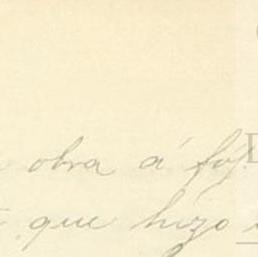 obra á foj
que hizo